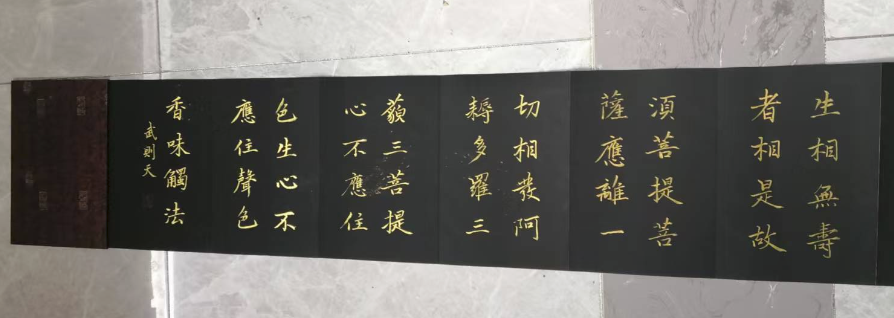 生相無壽
者相是故
須菩提菩
薩應離一
切相發阿
耨多羅三
藐三菩提
心不應住
色生心不
應住聲色
香味觸法
武則天